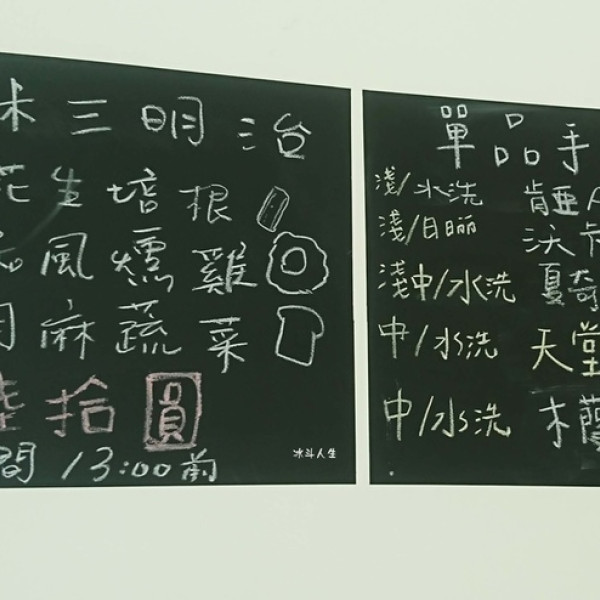 三明治
花生培根
風爐雞
胡麻蔬菜
拾圓
間 13:00前
冰斗人生
單品手
淺/水洗 肯亞A
淺/日晒 沃卡
淺中/水洗 夏奇
中/水洗 天堂
中/水洗 木蔭